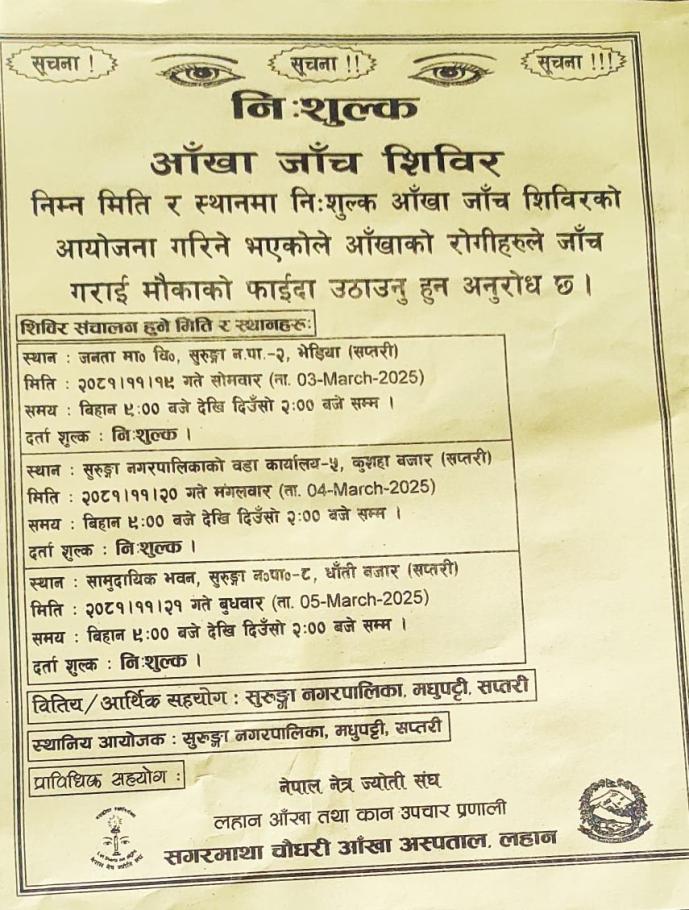 सूचना !
सूचना !!
सूचना !!!
निःशुल्क
आँखा जाँच शिविर
निम्न मिति र स्थानमा निःशुल्क आँखा जाँच शिविरको
आयोजना गरिने भएकोले आँखाको रोगीहरुले जाँच
गराई मौकाको फाईदा उठाउनु हुन अनुरोध छ ।
शिविर संचालन हुने मिति र स्थानहरुः
स्थान : जनता मा० वि०, सुरुङ्गा न.पा.-२, भेडिया (सप्तरी)
मिति : २०८१।११।१९ गते सोमवार (ता. 03-March-2025)
समय : बिहान ९:०० बजे देखि दिउँसो २:०० बजे सम्म ।
दर्ता शुल्क : निःशुल्क ।
स्थान : सुरुङ्गा नगरपालिकाको वडा कार्यालय-५, कुशहा बजार (सप्तरी)
मिति : २०८१।११।२० गते मंगलवार (ता. 04-March-2025)
समय : बिहान ९:०० बजे देखि दिउँसो २:०० बजे सम्म ।
दर्ता शुल्क : निःशुल्क ।
स्थान : सामुदायिक भवन, सुरुङ्गा न०पा०-८, धाँती बजार (सप्तरी)
मिति : २०८१।११।२१ गते बुधवार (ता. 05-March-2025)
समय : बिहान ९:०० बजे देखि दिउँसो २:०० बजे सम्म ।
दर्ता शुल्क : निःशुल्क ।
वितिय/आर्थिक सहयोग : सुरुङ्गा नगरपालिका, मधुपट्टी, सप्तरी
स्थानिय आयोजक : सुरुङ्गा नगरपालिका, मधुपट्टी, सप्तरी
प्राविधिक सहयोग :
नेपाल नेत्र ज्योती संघ
लहान आँखा तथा कान उपचार प्रणाली
सगरमाथा चौधरी आँखा अस्पताल, लहान